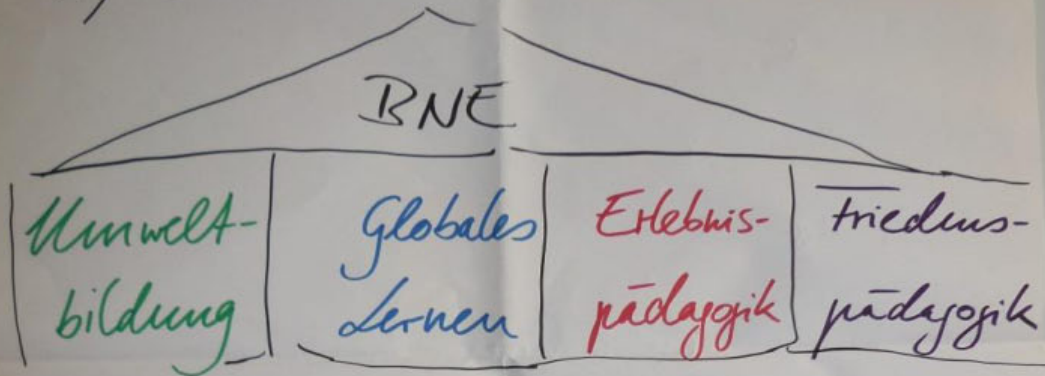 BNE
Umwelt-
bildung
Globales
Lernen
Erlebnis-
pädagogik
Friedens-
pädagogik